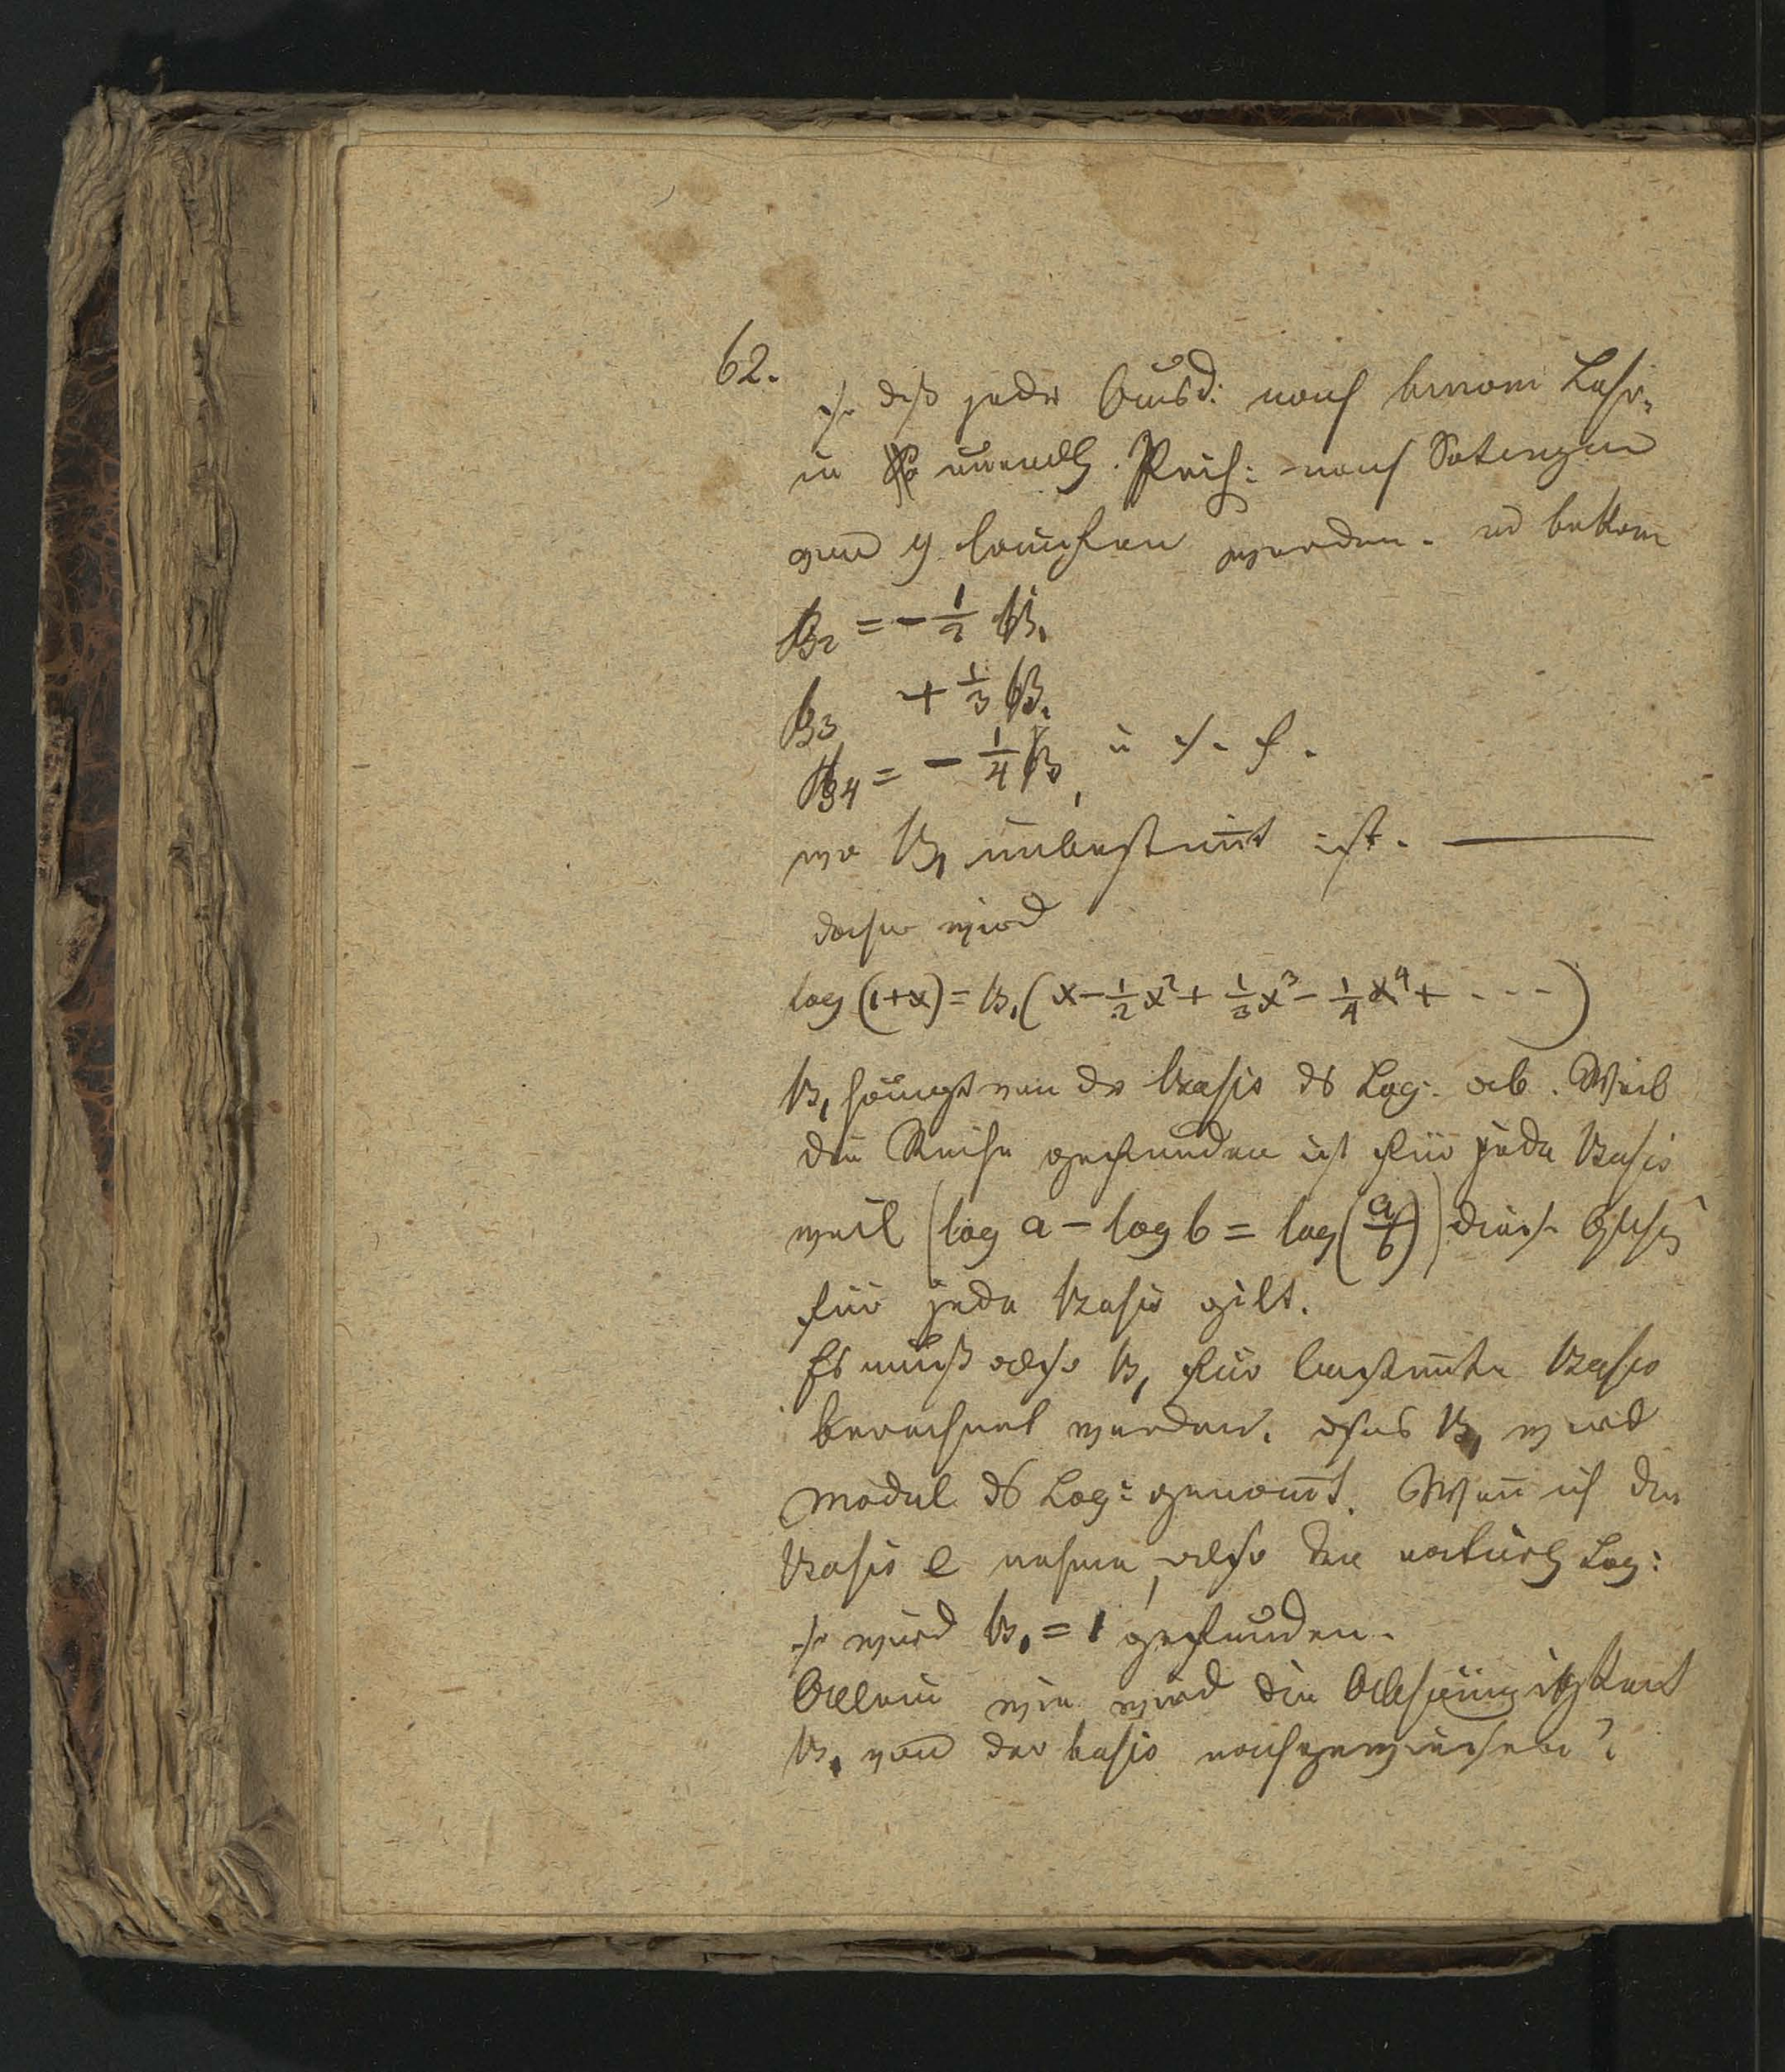 62.
so daß jeder Ausd: nach binom Lehr-
in unendl. Reih: nach Potenzen
von y laufen werden. u bekom
B2 = - 1/2 B1
B3 + 1/3 B1
B4 = - 1/4 B1 u s. f.
wo B1 unbestim̄t ist. —
daher wird
log (1+x) = B1 (x - 1/2 x² + 1/3 x³ - 1/4 x⁴ + - - -)
B1 hängt von dr Basis ds Log. ab. Weil
die Reihe gefunden ist für jede Basis
weil (log a - log b = log (a/b)) diese
für jede Basis gilt.
Es muß also B1 für bestim̄te Basis
berechnet werden. B1 wird
Modul ds Log: genan̄t. Wen̄ ich die
Basis e nehme, also den natürl Log:
so wird B1 = 1 gefunden.
Allein wie wird die Abhängigkeit
B1 von der basis nachgewiesen?